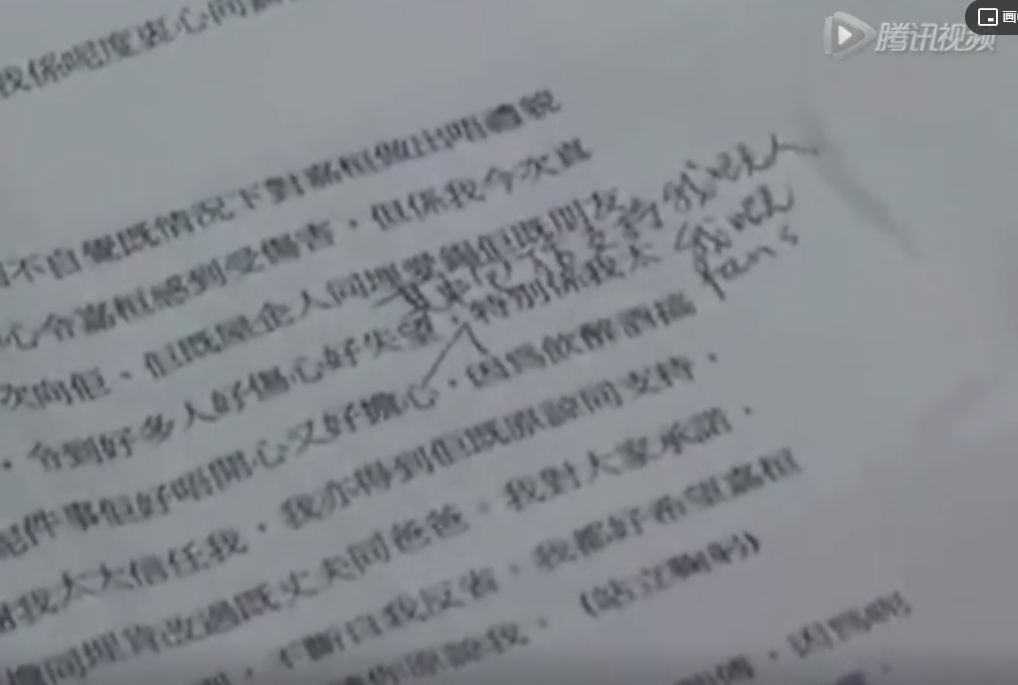 腾讯视频
我係呢度衷心同嘉
不自覺既情况下對嘉桓做出唔禮貌
心令嘉桓感到受傷害，但係我今次真
次向佢、佢既屋企人同埋愛錫佢既朋友
支持我既人
我既
fans
，令到好多人好傷心好失望，特別係我太
呢件事佢好唔開心又好擔心，因為飲醉酒搞
我太太信任我，我亦得到佢既原諒同支持，
同埋肯改過既丈夫同爸爸。我對大家承諾，
，不斷自我反省，我都好希望嘉桓
原諒我。(站立鞠躬)
，因為呢